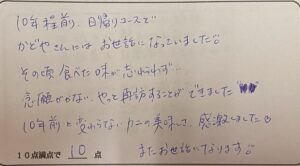 10年程前、日帰りコースで
かどやさんにはお世話になっていました。
その頃食べた味が忘れられず…
念願かない、やっと再訪することができました
10年前と変わらないカニの美味さ、感激しました
10点満点で 10 点 またお世話いなります。